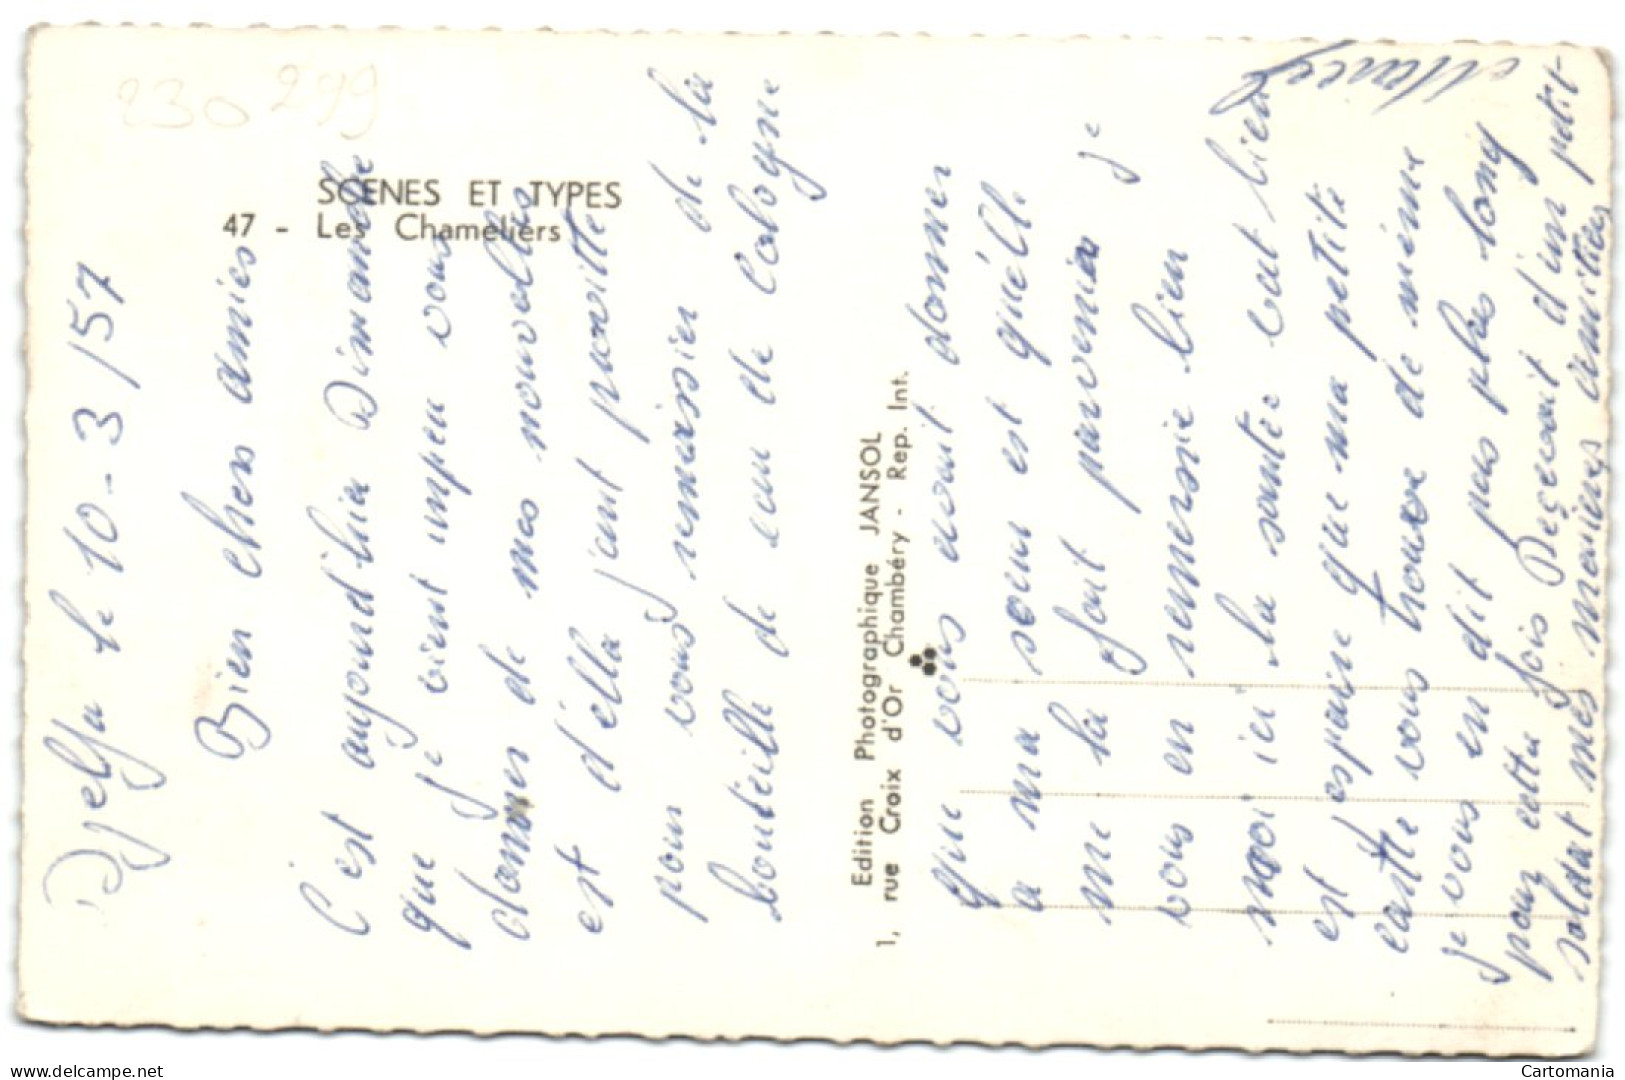 230 299
SCENES ET TYPES
47 - Les Chameliers
Djelfa le 10-3/57
Bien chers amies
C'est aujourd'hui Dimanche
que je vient unpeu vous
donner de mes nouvelles
est d'élla jant
pour vous remersier de la
bouteille de eau de Cologne
Edition Photographique JANSOL
1, rue Croix d'Or Chambéry - Rep. Int.
Que vous avait donner
a ma soeur est quélle
me la fait parvenia je
vous en remersie bien
moi ici la santée vat bien
est espaire que ma petite
cartte vous trouve de même
je vous en dit pas plus long
pour cette fois Reçevait d'un petit-
soldat mes meilleures amitiées
delcampe.net
Cartomania